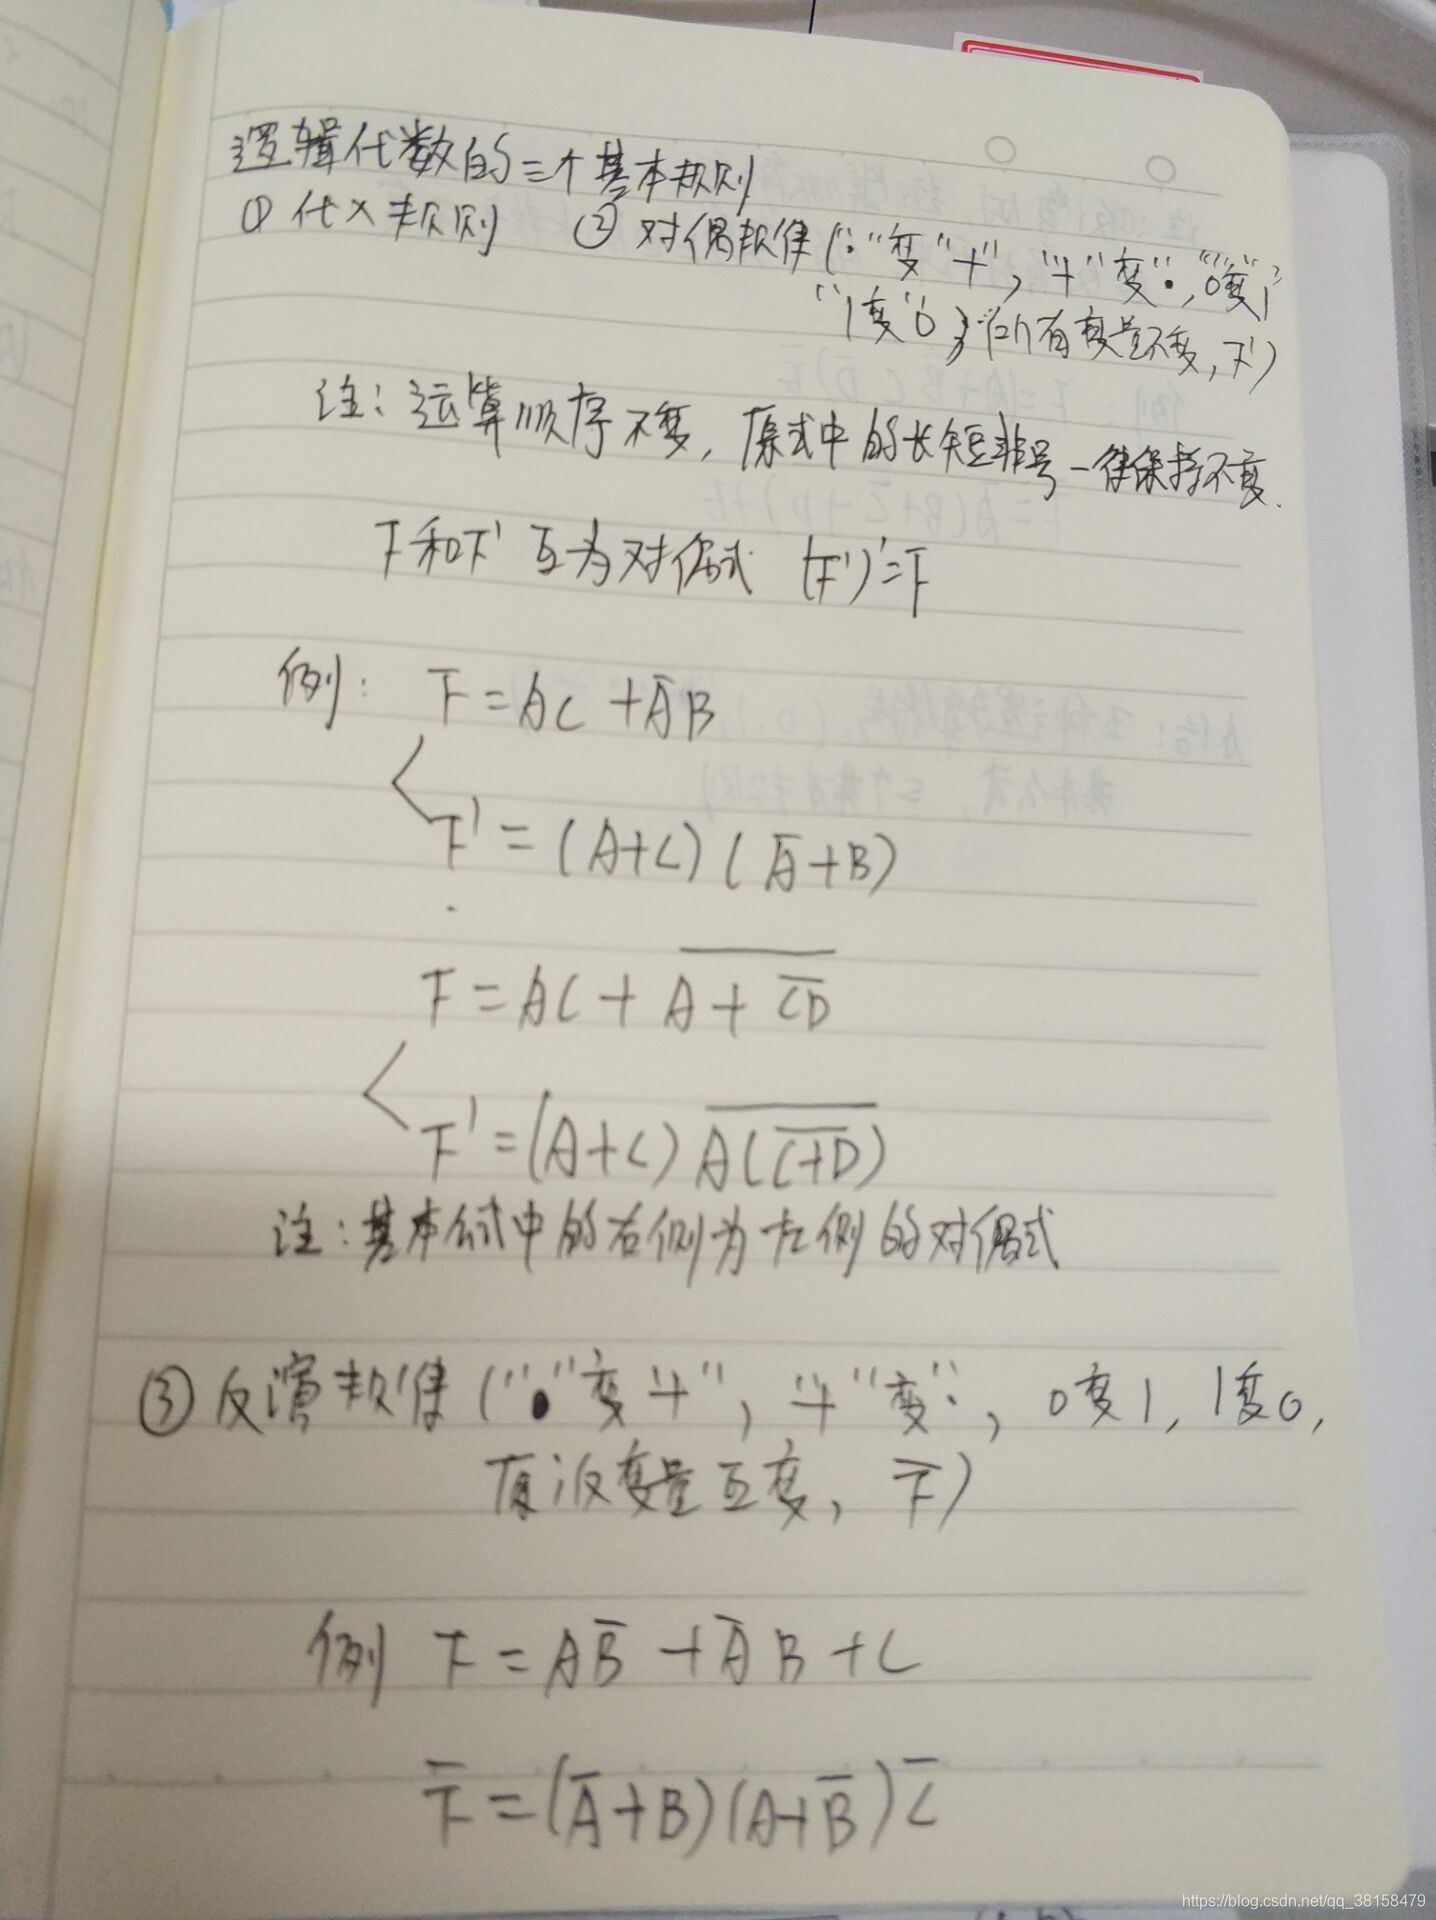 逻辑代数的三个基本规则
① 代入规则 ② 对偶规律("·"变"+", "+"变"·", "0"变"1"
"1"变"0", 所有变量不变, F')
注: 运算顺序不变, 原式中的长短非号一律保持不变.
F和F' 互为对偶式 (F')'=F
例: F=AC+A̅B
F'=(A+C)(A̅+B)
F=AC+\overline{A+\overline{CD}}
F'=(A+C)\overline{A(\overline{C+D})}
注:基本公式中的右侧为左侧的对偶式
③反演规律("·"变"+", "+"变"·", 0变1, 1变0,
原反变量互变, F̅)
例 F=AB̅+A̅B+C
F̅=(A̅+B)(A+B̅)C̅
https://blog.csdn.net/qq_38158479